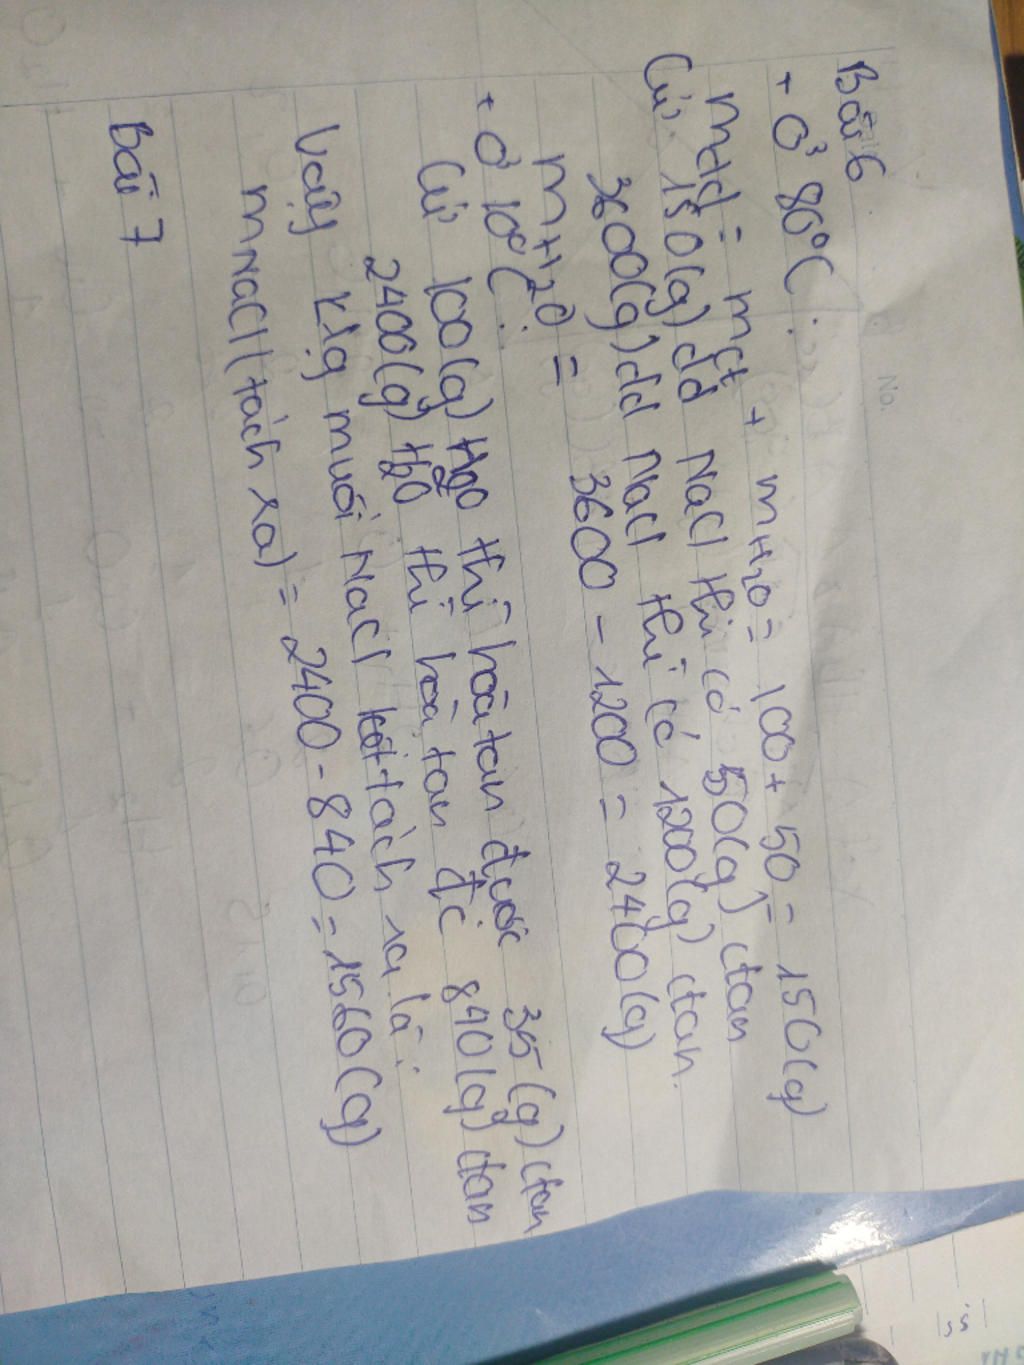 Bài 6
+ Ở 80°C:
mdd = mct + mH2O = 100 + 50 = 150(g)
Cứ 150(g) dd NaCl thì có 50(g) ctan
3600(g) dd NaCl thì có 1200(g) ctan.
mH2O = 3600 - 1200 = 2400(g)
+ Ở 10°C:
Cứ 100(g) H2O thì hòa tan được 35(g) ctan
2400(g) H2O thì hòa tan đc 840(g) ctan
Vậy klg muối NaCl kết tách ra là:
mNaCl (tách ra) = 2400 - 840 = 1560(g)
Bài 7
No.